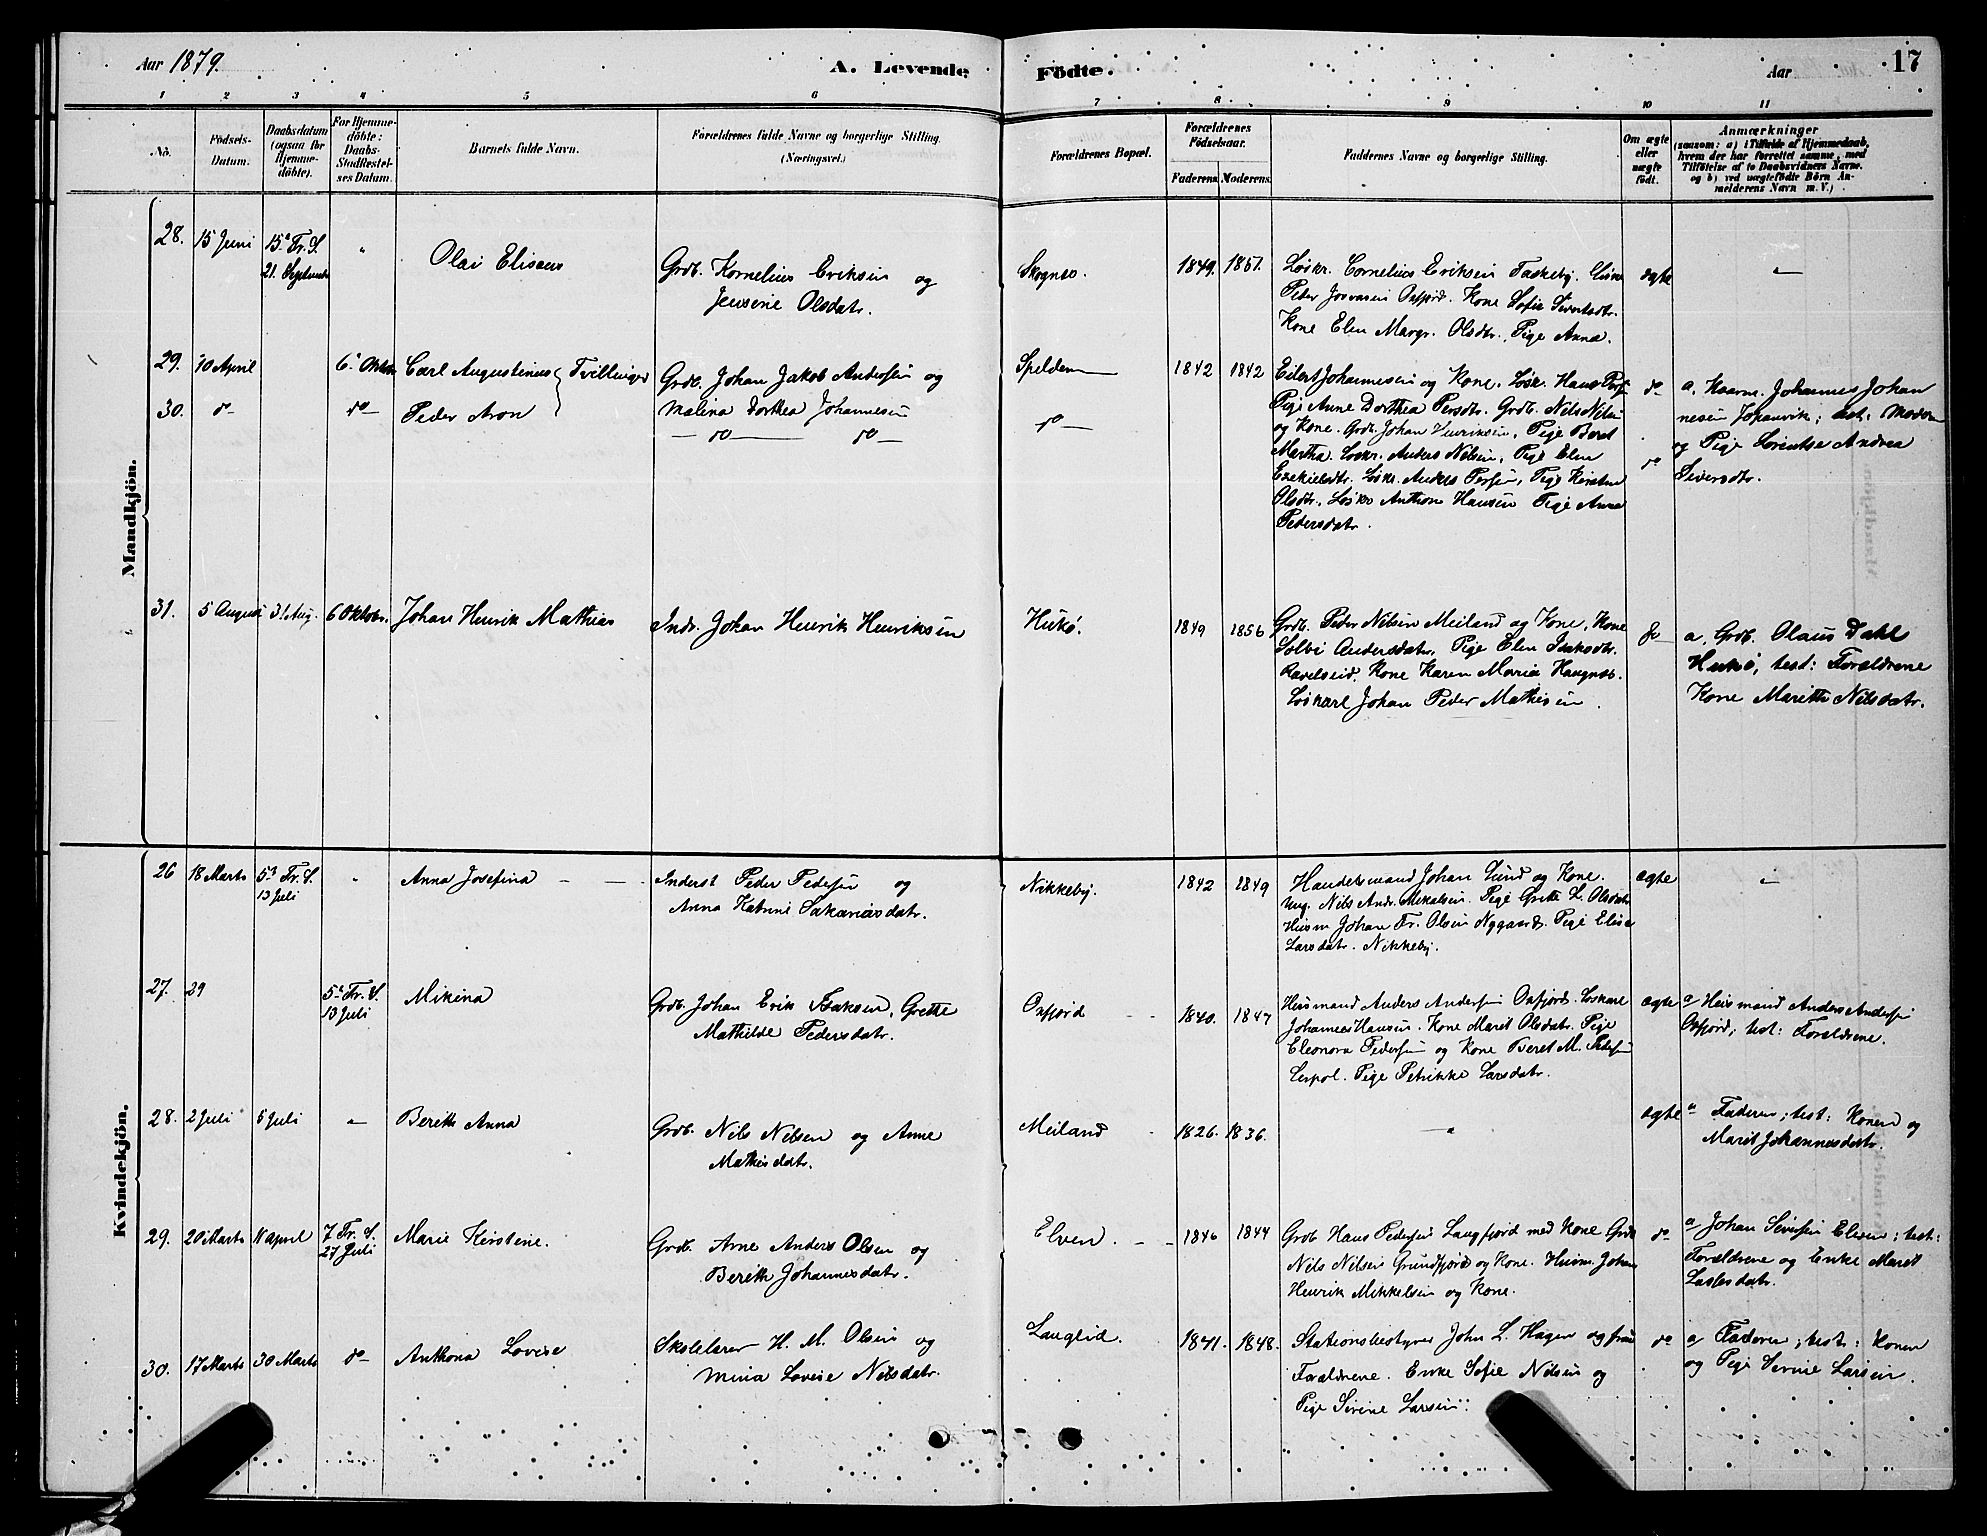 Aar 1879.
A. Levende Fødte.
Aar
17
1 2 3 4 5 6 7 8 9 10 11
No.
Fødsels-Datum.
Daabsdatum (ogsaa for Hjemmedøbte).
For Hjemmedøbte: Daabs-Stadfestelses Datum.
Barnets fulde Navn.
Forældrenes fulde Navne og borgerlige Stilling. (Næringsvei.)
Forældrenes Bopæl.
Forældrenes Fødselsaar.
Faderens. Moderens.
Faddernes Navne og borgerlige Stilling.
Om ægte eller uægte født.
Anmærkninger
(saasom: a) i Tilfælde af Hjemmedaab,
hvem der har forrettet samme, med
Tilføielse af to Daabsvidners Navne.
og b) ved uægtefødte Børn Anmelderens Navn m. V.)
Mandkjön.
28. 15 Juni 15 Tr. S. 21. Septemb " Olai Eliseus
Grdb. Kornelius Eriksen og
Jenserie Olsdatr.
Skognso. 1849. 1851.
Løskr. Cornelius Eriksen Taskeby.
Peder Josvasen Oxfjord. Kone Sofie Sivertsdtr.
Kone Elen Margr. Olsdtr. Pige Anna.
ægte "
29. 10 April 6 Oktob Carl Augustinus } Tvillinger
30. do do Peder Aron
Grdb. Johan Jakob Andersen og
Malina Dorthea Johannesen
do do
Spildern 1842 1842
do
Eilert Johannesen og Kone. Løsk. Hans Pers.
Pige Anne Dorthea Persdtr. Grdb. Nils Nilsen
og Kone. Grdb. Johan Henriksen, Pige Beret
Martha. Løskr. Anders Nilsen, Pige Elen
Ezekielsdtr. Løskr. Anders Persen, Pige Kirstine
Olsdtr. Løskr Anthon Hansen Pige Anne
Pedersdatr.
do
do
a, Kaarm. Johannes Johan
nesen Johanvik; test: Moderen
og Pige Lorentse Andrea
Siversdtr.
31. 5 August 31 Aug. 6 Oktobr. Johan Henrik Mathias
Indr. Johan Henrik Henriksen
Hukø. 1849 1856
Grdb. Peder Nilsen Meiland og Kone, Kone
Solvi Andersdatr, Pige Elen Isaksdtr.
Ravelseid. Kone Karen Maria Haugnes.
Løskarl Johan Peder Mathisen.
do
a, Grdb. Olaus Dahl
Hukø, test: Forældrene
Kone Marith Nilsdatr.
Kvindekjön.
26 18 Marts 5 Tr. S. 13 Juli " Anna Josefina
Inderst Peder Pedersen og
Anna Katrine Sakariasdatr.
Nikkeby. 1842 1849
Handelsmand Johan Lund og Kone.
Ung. Nils Andr. Mikalsen. Pige Grete L. Olsdatr
Husm Johan Fr. Olsen Nygaard. Pige Elise
Larsdatr. Nikkeby.
ægte "
27. 29 5 Tr. S. 13 Juli Mikina
Grdb. Johan Erik Isaksen, Grette
Mathilde Pedersdatr.
Oxfjord 1840. 1847
Husmand Anders Andersen Oxfjord. Løskarl
Johannes Hansen. Kone Maret Olsdatr. Pige
Eleonora Pedersen og Kone Beret M. Pedersen
Lerpol. Pige Petrikke Larsdatr.
ægte
a Husmand Anders Andersen
Oxfjord; test: Forældrene.
28. 2 Juli 6 Juli " Berith Anna
Grdb. Nils Nilsen og Anne
Mathisdatr.
Meiland 1826. 1836.
"
ægte
a Faderen; test: Konen og
Marit Johannesdatr.
29. 20 Marts 11 April 7 Tr. S. 27 Juli Marie Kirstine.
Grdb. Arne Anders Olsen og
Berith Johannesdatr.
Elven. 1846 1844
Grdb Hans Pedersen Langfjord med Kone Grdb
Nils Nilsen Grundfjord og Kone. Husm. Johan
Henrik Mikkelsen og Kone.
do
a Johan Seversen Elven; test:
Forældrene og Enke Maret
Larsdatr.
30. 17 Marts 30 Marts do Anthona Lovise
Skolelærer H. M. Olsen og
Mina Lovise Nilsdatr.
Langlid. 1841. 1848.
Stationsbestyrer John L. Hagen og frue
Forældrene. Enke Sofie Nilsen og
Pige Serine Larsen.
do
a Faderen; test: Konen
og Pige Serine Larsen.